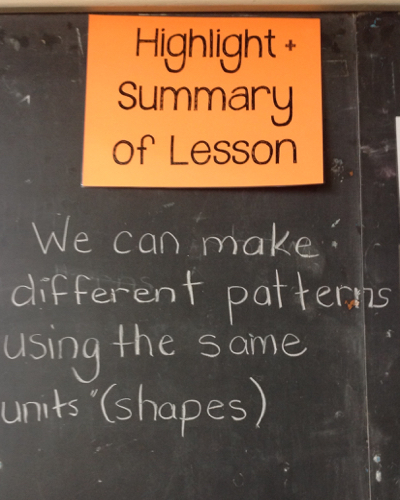 Highlight +
Summary
of Lesson
We can make
different patterns
using the same
units" (shapes)